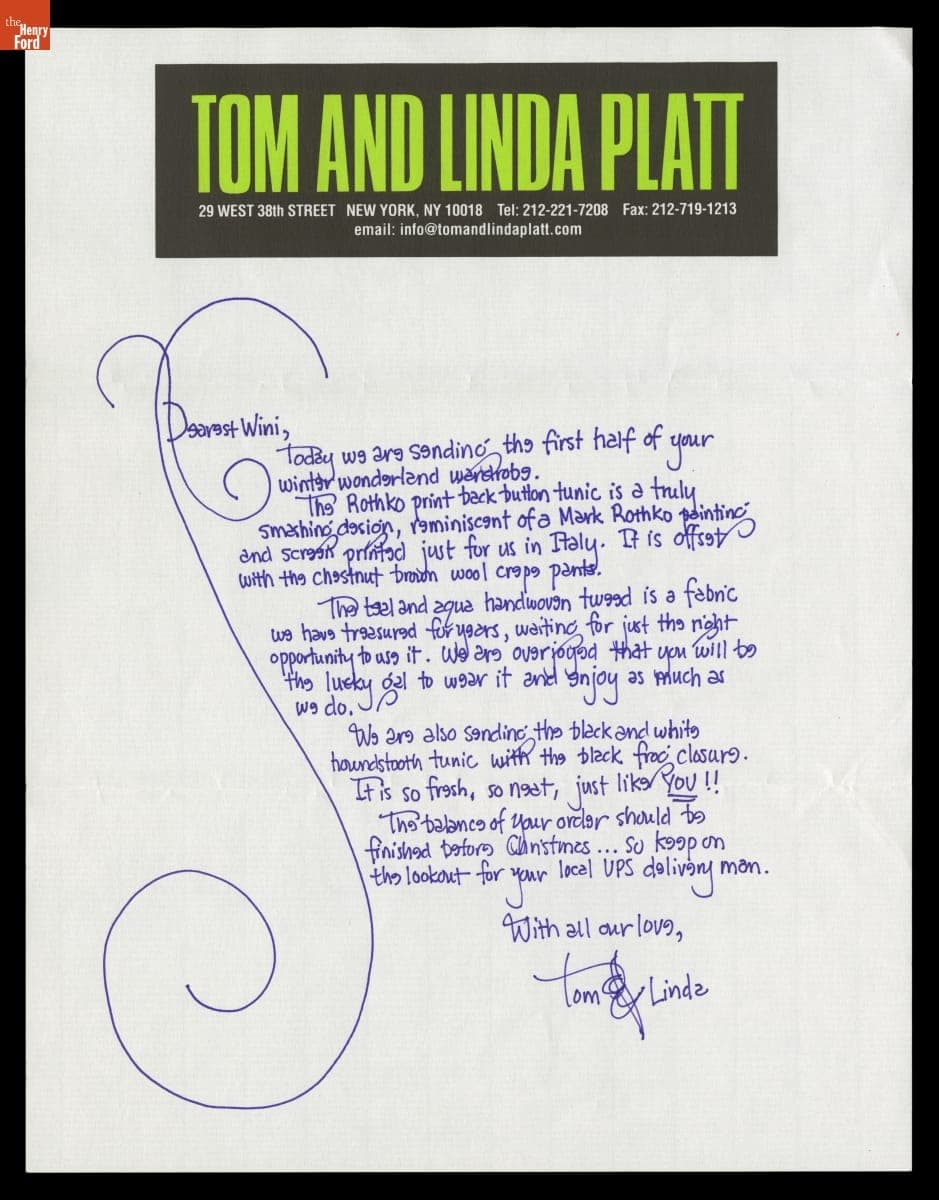 the
Henry
Ford
TOM AND LINDA PLATT
29 WEST 38th STREET NEW YORK, NY 10018 Tel: 212-221-7208 Fax: 212-719-1213
email: info@tomandlindaplatt.com
Dearest Wini,
Today we are sending the first half of your
winter wonderland wardrobe.
The Rothko print back button tunic is a truly
smashing design, reminiscent of a Mark Rothko painting
and screen printed just for us in Italy. It is offset
with the chestnut brown wool crepe pants.
The teal and aqua handwoven tweed is a fabric
we have treasured for years, waiting for just the right
opportunity to use it. We are overjoyed that you will be
the lucky gal to wear it and enjoy as much as
we do.
We are also sending the black and white
houndstooth tunic with the black frog closure.
It is so fresh, so neat, just like YOU!!
The balance of your order should be
finished before Christmas ... so keep on
the lookout for your local UPS delivery man.
With all our love,
Tom & Linda